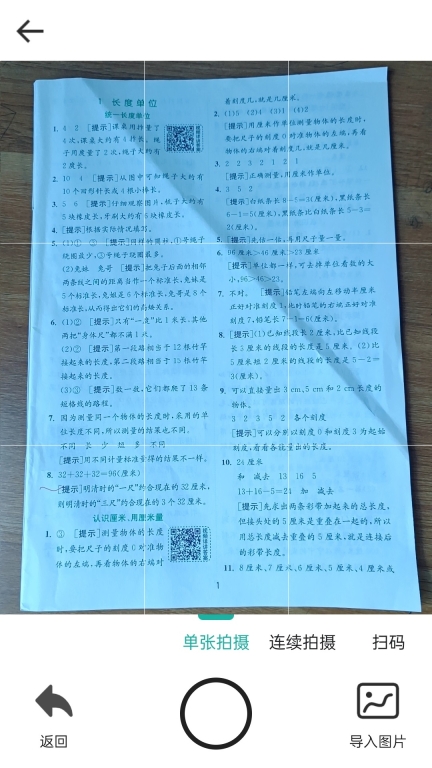 1 长度单位
统一长度单位
1. 4 2 [提示]课桌用拃量了
4次,课桌大约有4拃长。绳
子用庹量了2次,绳子大约有
2庹长。
2. 10 4 [提示]从图中可知绳子大约有
10个回形针长或4根小棒长。
3. 5 6 [提示]仔细观察图,梳子大约有
5块橡皮长,牙刷大约有6块橡皮长。
4. [提示]根据实际情况填写。
5. (1)① ② [提示]同样的圆柱,①号绳子
绕圈最少,②号绳子绕圈最多。
(2)兔妹 兔哥 [提示]把兔子后面的相邻
两条线之间的距离看作一个标准长,兔妹是
5个标准长,兔姐是6个标准长,兔哥是8个
标准长,从而得出它们的高矮关系。
6. (1)② [提示]只有“一庹”比1米长,其他
两把“身体尺”都不满1米。
(2)② [提示]第一段路相当于12根竹竿
接起来的长度,第二段路相当于15根竹竿
接起来的长度。
(3)③ [提示]数一数,它们都爬了13条
短格线的路程。
7. 因为测量同一个物体的长度时,采用的单
位长度不同,所以测量的结果也不同。
不同 长 少 短 多 不同
[提示]用不同计量标准量得的结果不一样。
8. 32+32+32=96(厘米)
[提示]明清时的“一尺”约合现在的32厘米,
则明清时的“三尺”约合现在的3个32厘米。
认识厘米、用厘米量
1. ③ [提示]测量物体的长度
时,要把尺子的刻度0对准物
体的左端,再看物体的右端对
着刻度几,就是几厘米。
2. (1)5 (2)4 (3)1 (4)2
[提示]用厘米作单位测量物体的长度时,
要把尺子的刻度0对准物体的左端,再看
物体的右端对着刻度几,就是几厘米。
3. 2 2 3 2 1 2 1
[提示]正确测量,用厘米作单位。
4. 3 5 2
[提示]白纸条长8-5=3(厘米),黑纸条长
6-1=5(厘米),黑纸条比白纸条长5-3=
2(厘米)。
5. [提示]先估一估,再用尺子量一量。
6. 96厘米>46厘米>23厘米
[提示]单位都一样,可去掉单位看数的大
小,96>46>23。
7. 不对。 [提示]铅笔左端向左移动半厘米
正好对准刻度1,此时铅笔的右端正好对准
刻度7,铅笔长7-1=6(厘米)。
8. [提示](1)已知线段长2厘米,比已知线段
长3厘米的线段的长度是5厘米。(2)比
5厘米短2厘米的线段的长度是5-2=
3(厘米)。
9. 可以直接量出3cm、5cm和2cm长度的
物体。
3 2 3 5 2 各个刻度
[提示]可以分别以刻度0和刻度3为起始
刻度,看看各能量出的长度。
10. 24厘米
和 减去 13 16 5
13+16-5=24 加 减去
[提示]先求出两条彩带加起来的总长度,
但接头处的5厘米是重叠在一起的,所以
用总长度减去重叠的5厘米,就是连接后
的彩带长度。
11. 8厘米、7厘米、6厘米、5厘米、4厘米或
1
单张拍摄 连续拍摄 扫码
返回 导入图片